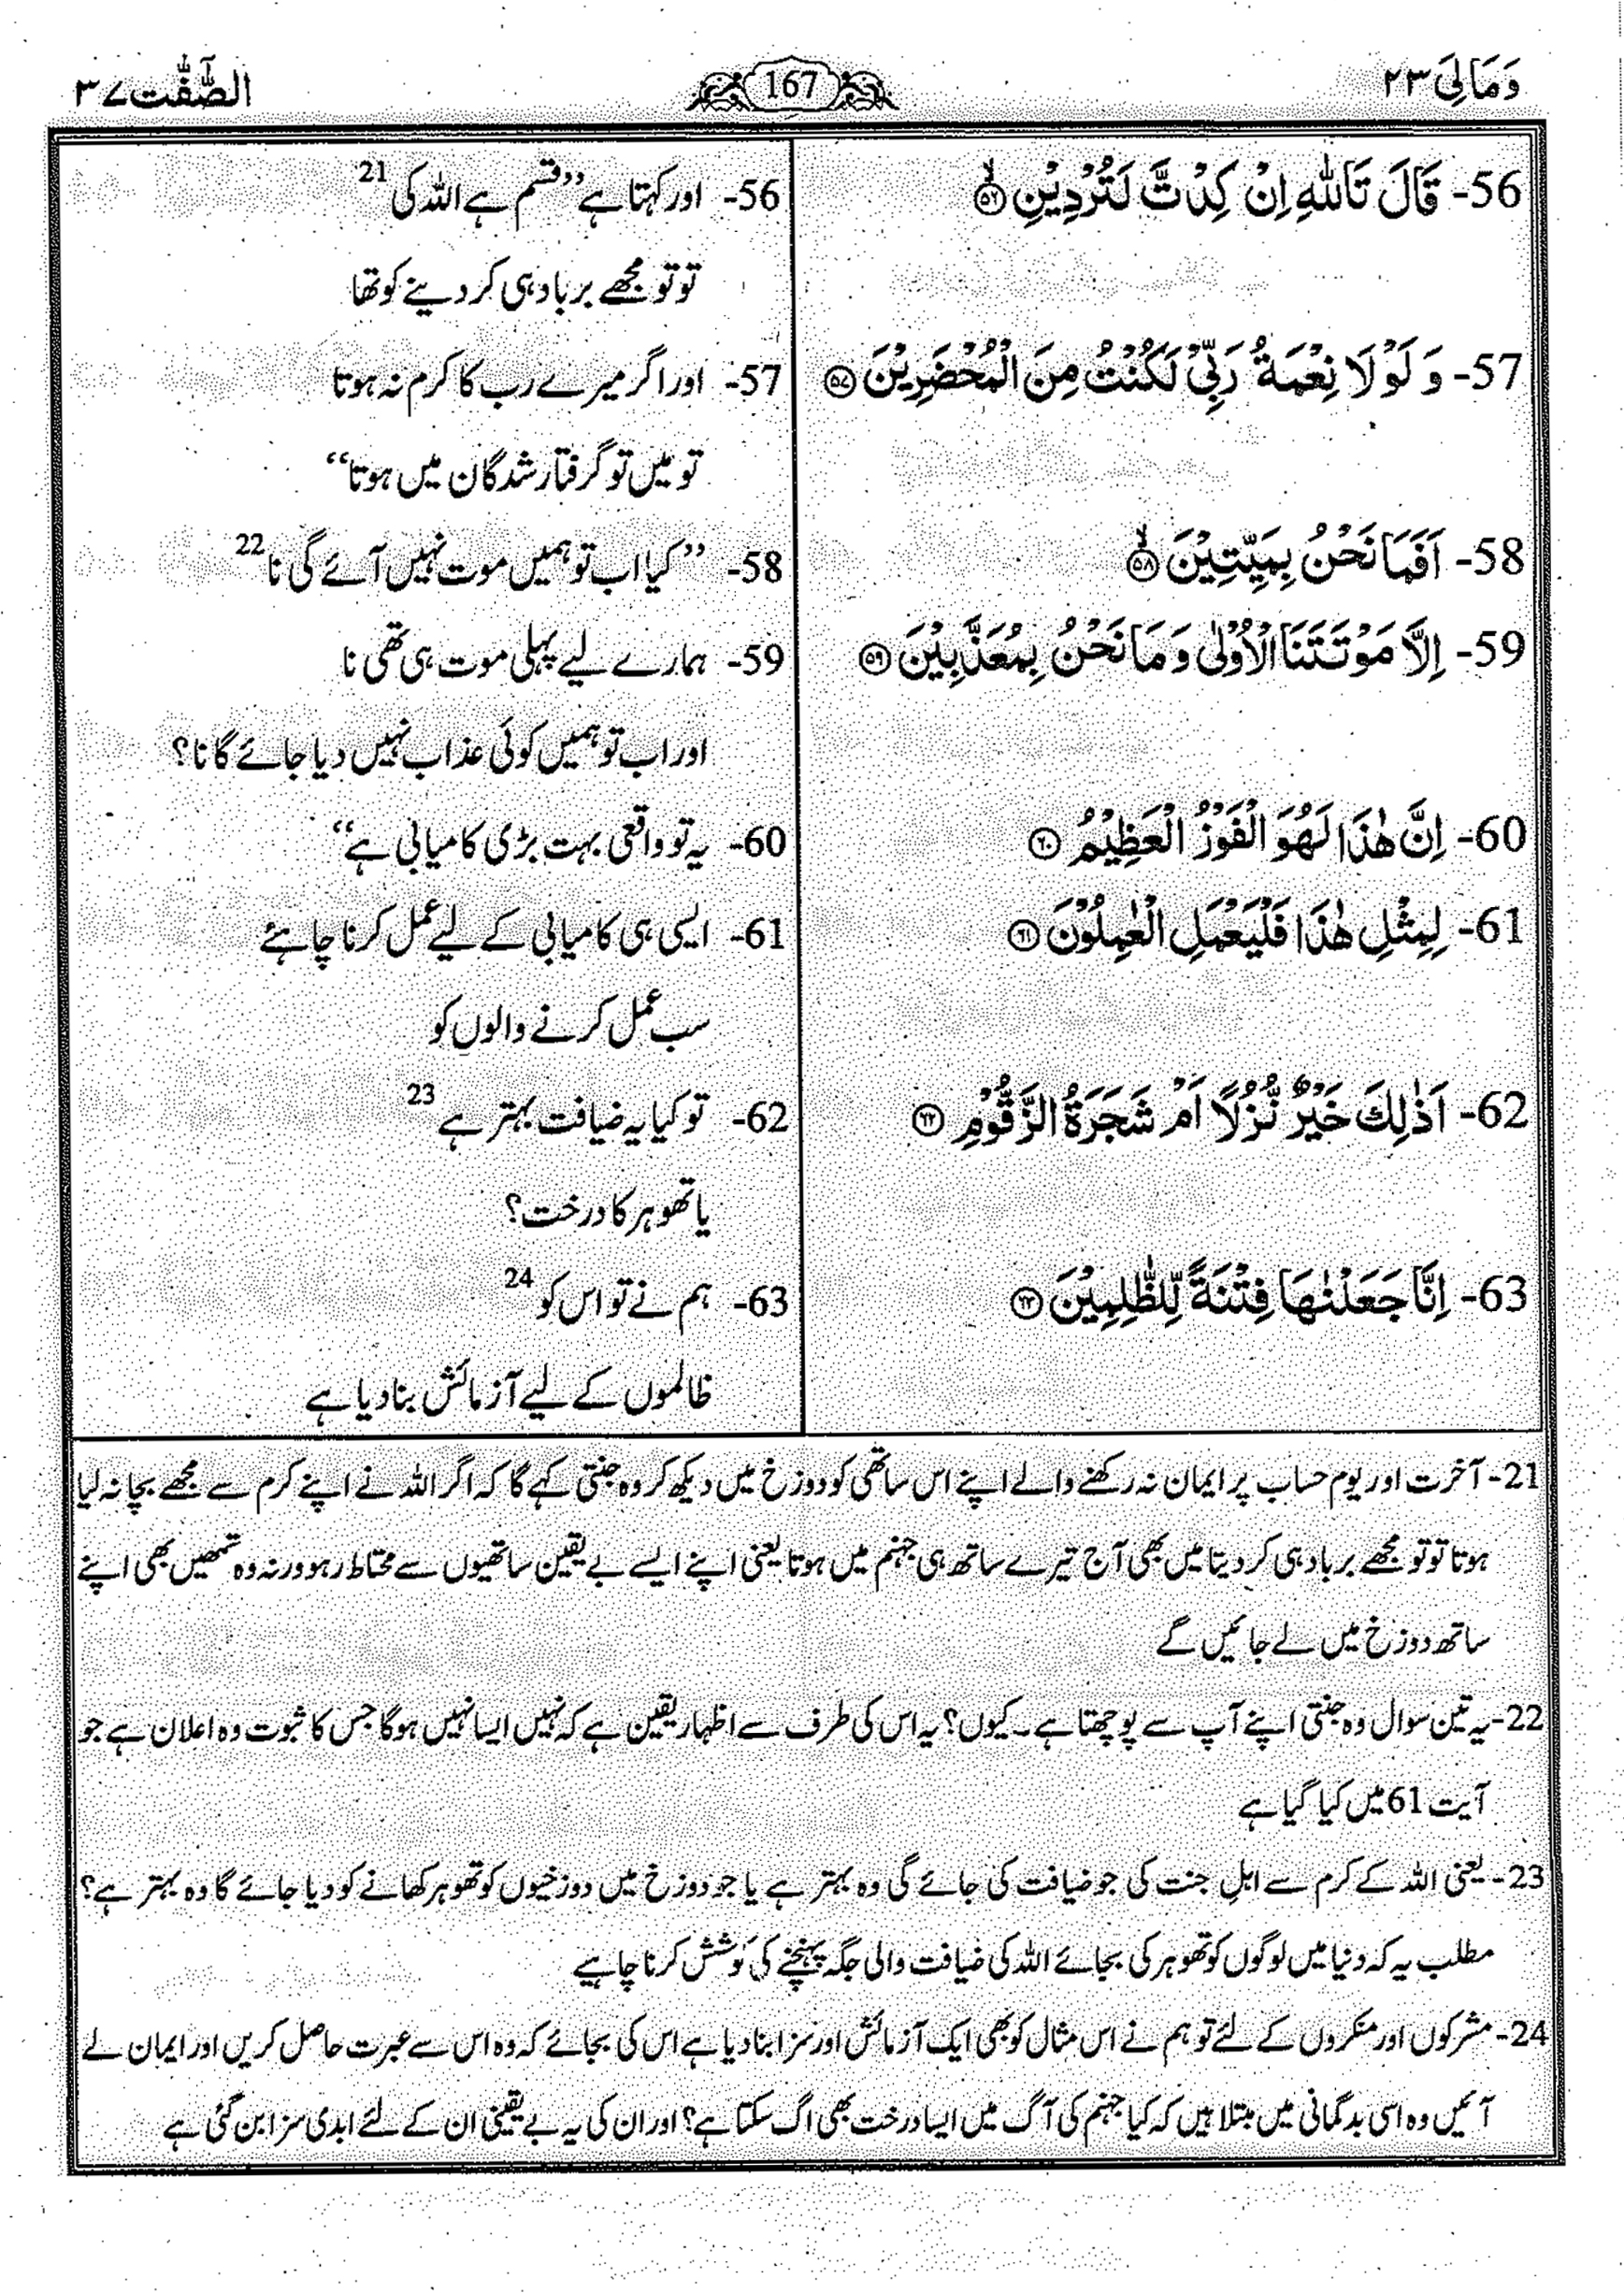 وَمَالِیَ ۲۳
167
الصّٰٓفّٰت ۳۷
56- قَالَ تَاللّٰهِ اِنْ كِدْتَّ لَتُرْدِیْنِ ۙ﴿۵۶﴾
57- وَ لَوْ لَا نِعْمَةُ رَبِّیْ لَكُنْتُ مِنَ الْمُحْضَرِیْنَ ﴿۵۷﴾
58- اَفَمَا نَحْنُ بِمَیِّتِیْنَ ۙ﴿۵۸﴾
59- اِلَّا مَوْتَتَنَا الْاُوْلٰى وَ مَا نَحْنُ بِمُعَذَّبِیْنَ ﴿۵۹﴾
60- اِنَّ هٰذَا لَهُوَ الْفَوْزُ الْعَظِیْمُ ﴿۶۰﴾
61- لِمِثْلِ هٰذَا فَلْیَعْمَلِ الْعٰمِلُوْنَ ﴿۶۱﴾
62- اَذٰلِكَ خَیْرٌ نُّزُلًا اَمْ شَجَرَةُ الزَّقُّوْمِ ﴿۶۲﴾
63- اِنَّا جَعَلْنٰهَا فِتْنَةً لِّلظّٰلِمِیْنَ ﴿۶۳﴾
56- اور کہتا ہے ’’قسم ہے اللہ کی 21
تو تو مجھے برباد ہی کر دینے کو تھا
57- اور اگر میرے رب کا کرم نہ ہوتا
تو میں تو گرفتار شدگان میں ہوتا‘‘
58- ’’کیا اب تو ہمیں موت نہیں آئے گی نا 22
59- ہمارے لیے پہلی موت ہی تھی نا
اور اب تو ہمیں کوئی عذاب نہیں دیا جائے گا نا؟
60- یہ تو واقعی بہت بڑی کامیابی ہے‘‘
61- ایسی ہی کامیابی کے لیے عمل کرنا چاہئے
سب عمل کرنے والوں کو
62- تو کیا یہ ضیافت بہتر ہے 23
یا تھوہر کا درخت؟
63- ہم نے تو اس کو 24
ظالموں کے لیے آزمائش بنا دیا ہے
21- آخرت اور یوم حساب پر ایمان نہ رکھنے والے اپنے اس ساتھی کو دوزخ میں دیکھ کر وہ جنتی کہے گا کہ اگر اللہ نے اپنے کرم سے مجھے بچا نہ لیا
ہوتا تو تو مجھے برباد ہی کر دیتا میں بھی آج تیرے ساتھ ہی جہنم میں ہوتا یعنی اپنے ایسے بے یقین ساتھیوں سے محتاط رہو ورنہ وہ تمھیں بھی اپنے
ساتھ دوزخ میں لے جائیں گے
22- یہ تین سوال وہ جنتی اپنے آپ سے پوچھتا ہے۔ کیوں؟ یہ اس کی طرف سے اظہار یقین ہے کہ نہیں ایسا نہیں ہوگا جس کا ثبوت وہ اعلان ہے جو
آیت 61 میں کیا گیا ہے
23- یعنی اللہ کے کرم سے اہلِ جنت کی جو ضیافت کی جائے گی وہ بہتر ہے یا جو دوزخ میں دوزخیوں کو تھوہر کھانے کو دیا جائے گا وہ بہتر ہے؟
مطلب یہ کہ دنیا میں لوگوں کو تھوہر کی بجائے اللہ کی ضیافت والی جگہ پہنچنے کی کوشش کرنا چاہیے
24- مشرکوں اور منکروں کے لئے تو ہم نے اس مثال کو بھی ایک آزمائش اور سزا بنا دیا ہے اس کی بجائے کہ وہ اس سے عبرت حاصل کریں اور ایمان لے
آئیں وہ اسی بدگمانی میں مبتلا ہیں کہ کیا جہنم کی آگ میں ایسا درخت بھی اگ سکتا ہے؟ اور ان کی یہ بے یقینی ان کے لئے ابدی سزا بن گئی ہے